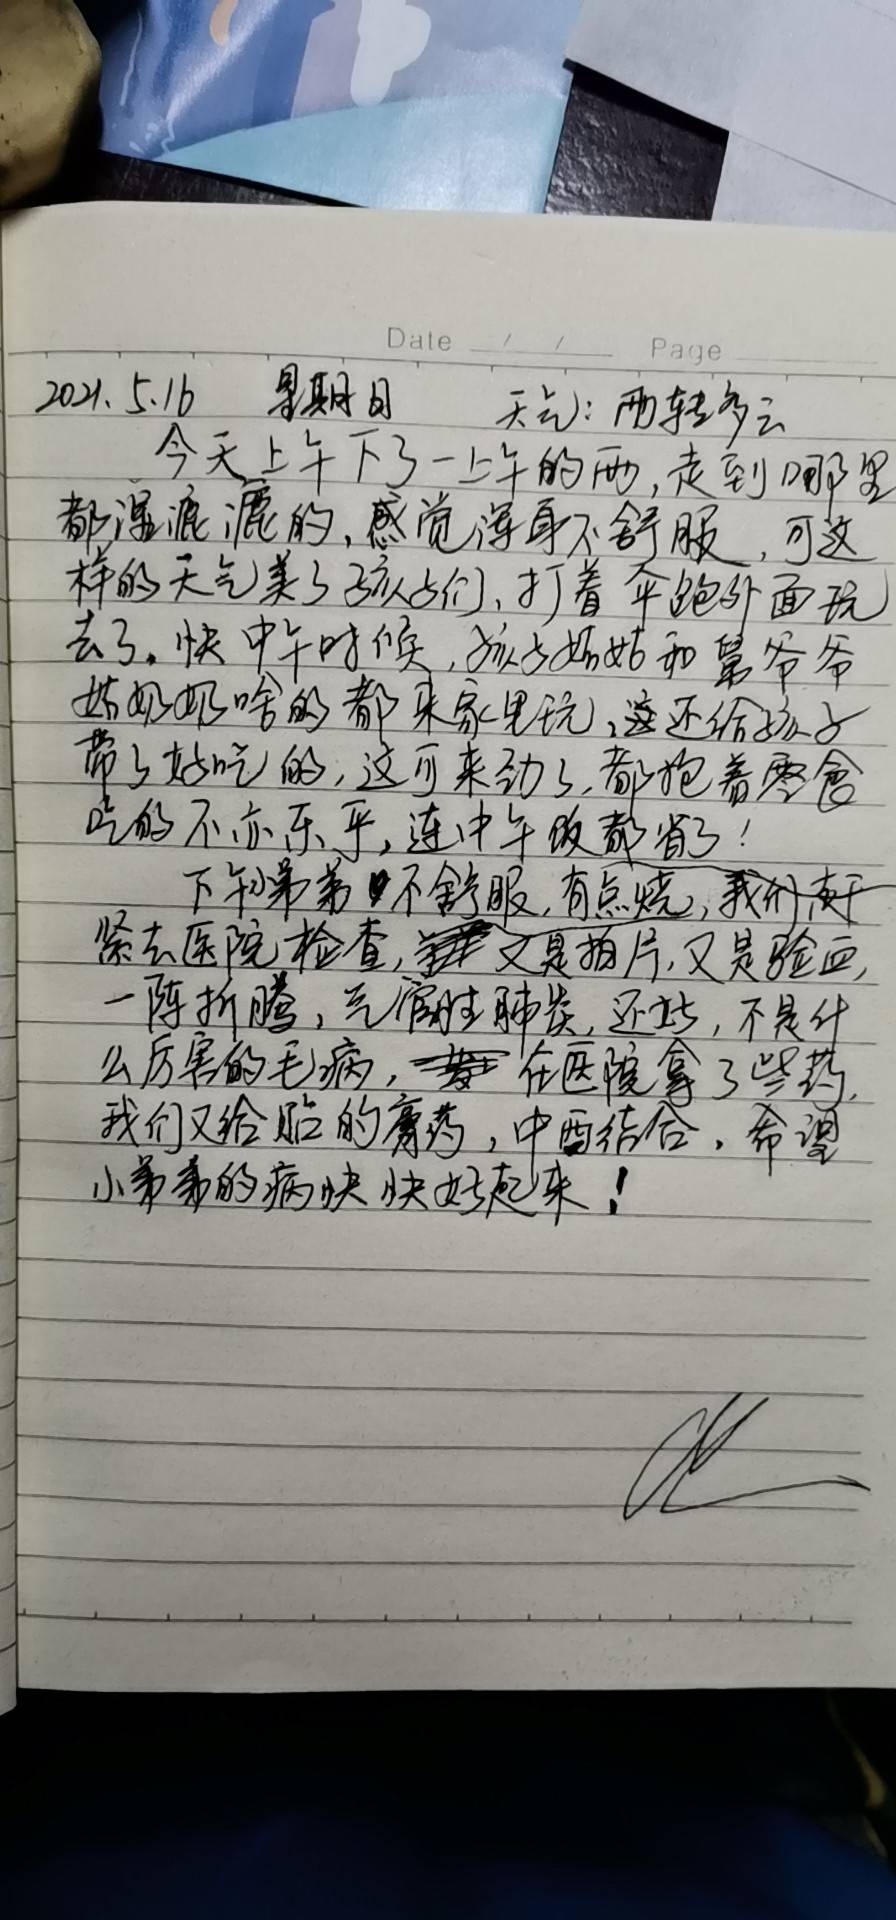 Date / / Page
2021.5.16 星期日 天气：雨转多云
今天上午下了一上午的雨，走到哪里
都湿漉漉的，感觉浑身不舒服，可这
样的天气美了孩子们，打着伞跑外面玩
去了。快中午时候，孩子姑姑和舅爷爷
姑奶奶啥的都来家里玩，还给孩子
带了好吃的，这可来劲了，都抱着零食
吃的不亦乐乎，连中午饭都省了！
下午小弟弟不舒服，有点烧，我们赶
紧去医院检查，又是拍片，又是验血，
一阵折腾，气管性肺炎，还好，不是什
么厉害的毛病，在医院拿了些药，
我们又给贴的膏药，中西结合，希望
小弟弟的病快快好起来！